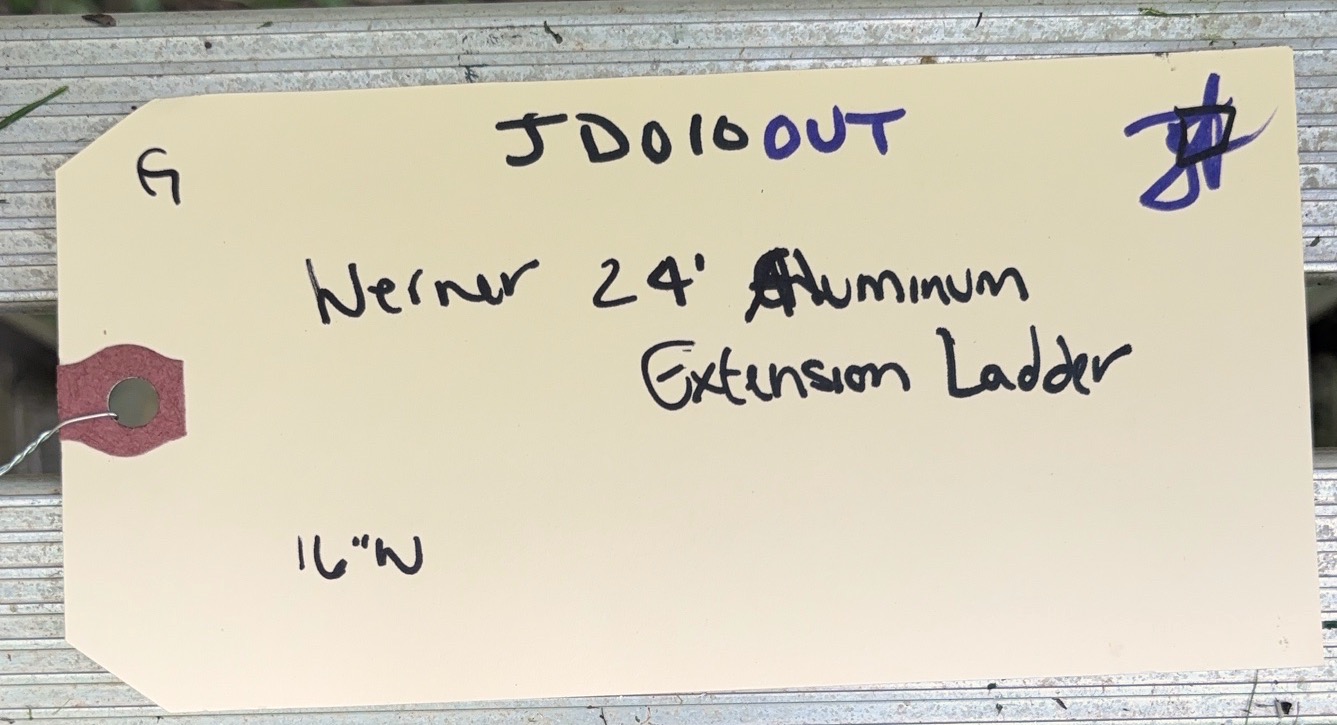 G
JD010OUT
Werner 24' Aluminum
Extension Ladder
16"W